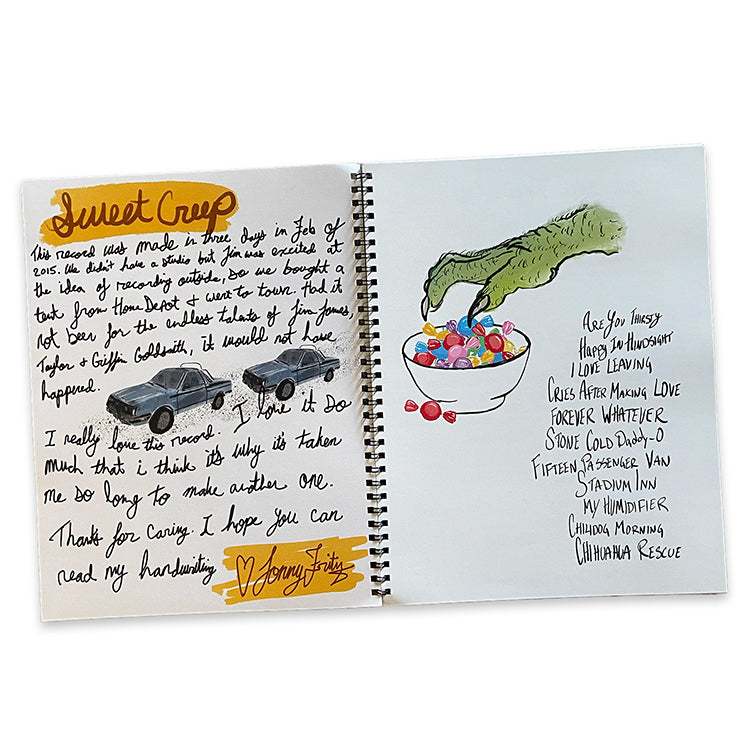 Sweet Creep
This record was made in three days in Feb of
2015. We didn't have a studio but Jim was excited at
the idea of recording outside, so we bought a
tent from Home Depot & went to town. Had it
not beer for the endless talents of Jim James,
Taylor & Griffin Goldsmith, it would not have
happened.
I really love this record. I love it so
much that i think it's why it's taken
me so long to make another one.
Thanks for caring. I hope you can
read my handwriting
♡ Jonny Fritz
Are You Thirsty
Happy In Hindsight
I Love Leaving
Cries After Making Love
Forever Whatever
Stone Cold Daddy-O
Fifteen Passenger Van
Stadium Inn
My Humidifier
Chilidog Morning
Chihuahua Rescue